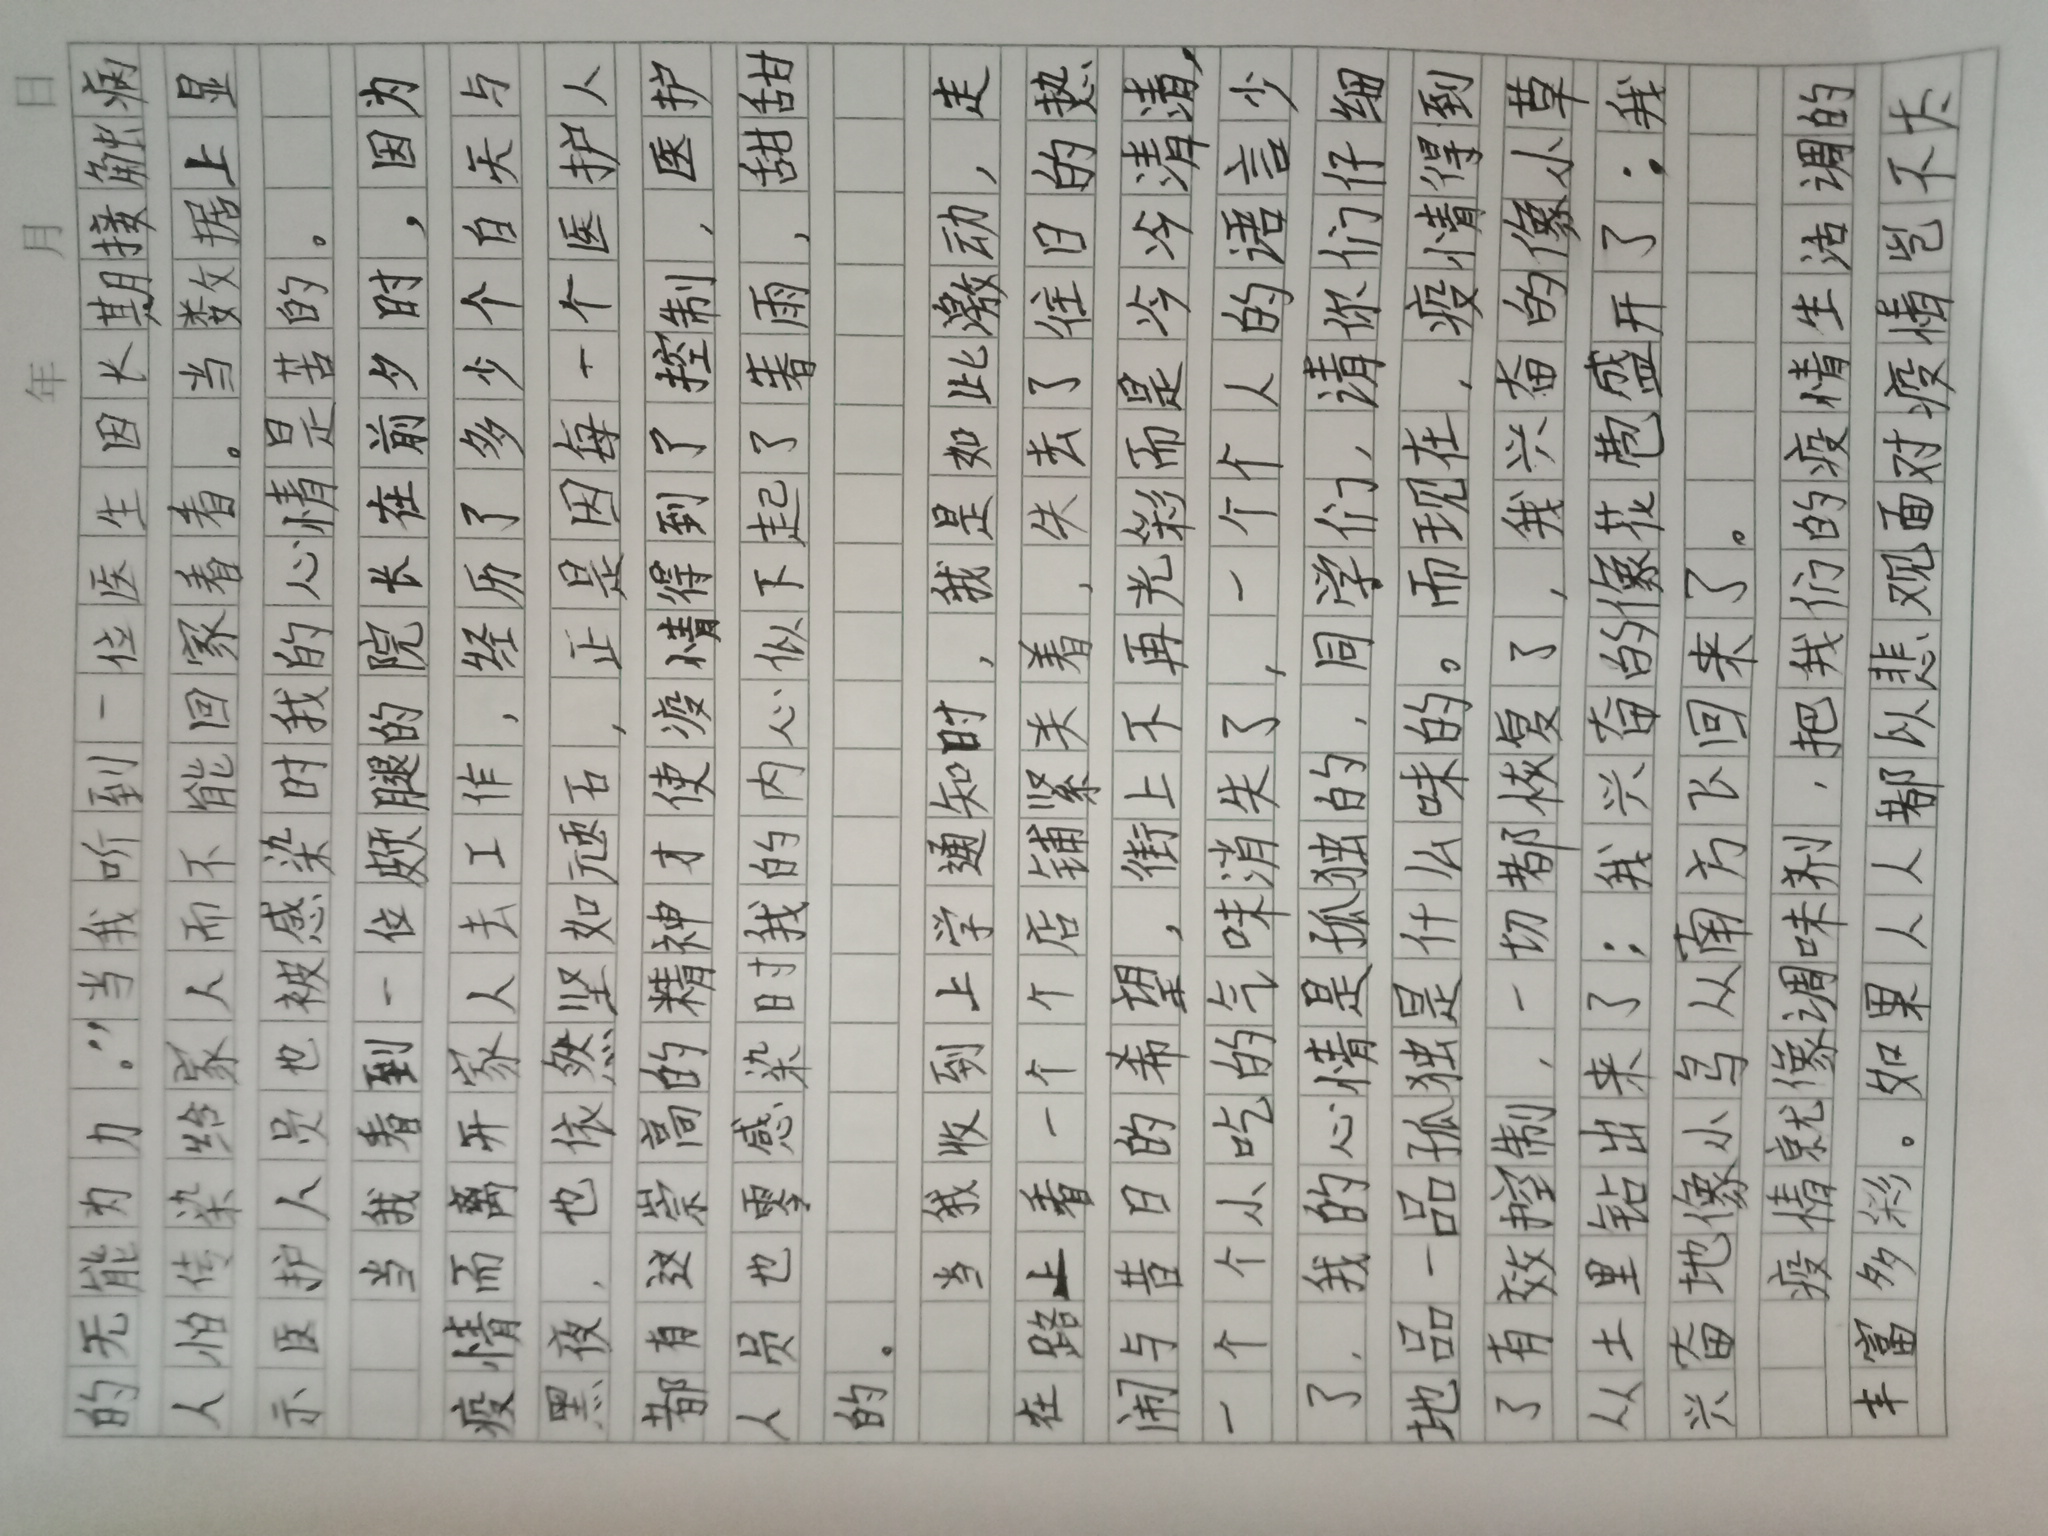 年 月 日
的无能为力。”当我听到一位医生因长期接触病
人怕传染给家人而不能回家看看。当数据上显
示医护人员也被感染时我的心情是苦的。
当我看到一位颇腿的院长在前夕时，因为
疫情而离开家人去工作，经历了多少个白天与
黑夜，也依然坚如顽石，正是因每一个医护人
都有这崇高的精神才使疫情得到了控制，医护
人员也零感染时我的内心似下起了着雨，甜甜
的。
当我收到上学通知时，我是如此激动，走
在路上看一个个店铺紧关着，失去了往日的热
闹与昔日的希望，街上不再光彩而是冷冷清清，
一个个小吃的气味消失了，一个个人的语言少
了，我的心情是孤独的，同学们，请你们仔细
地品一品孤独是什么味的。而现在，疫情得到
了有效控制，一切都恢复了，我兴奋的像小草
从土里钻出来了；我兴奋的像花苞盛开了；我
兴奋地像小鸟从南方飞回来了。
疫情就像调味剂，把我们的疫情生活调的
丰富多彩。如果人人都以悲观面对疫情岂不太